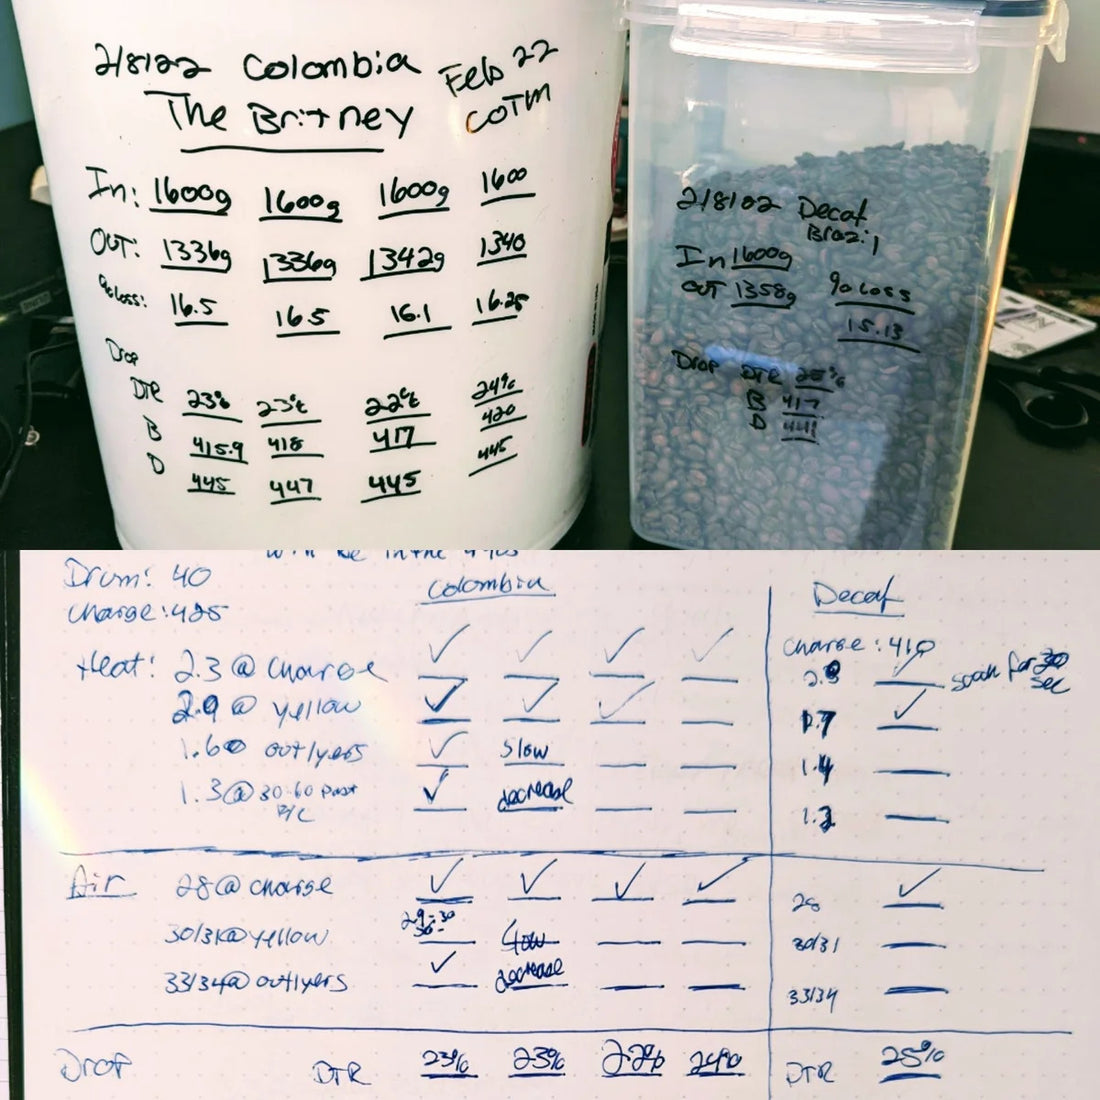 2/8/22 Colombia Feb 22
The Britney COTM
In: 1600g 1600g 1600g 1600
OUT: 1336g 1336g 1342g 1340
%loss: 16.5 16.5 16.1 16.25
Drop
DTR 23% 23% 22% 24%
B 415.9 418 417 420
D 445 447 445 445
2/8/22 Decaf
Brazil
In 1600g
OUT 1358g % loss
15.13
Drop DTR 25%
B 417
D 441
will be in the
Drum: 40 Colombia Decaf
Charge: 425
Charge: 410
Heat: 2.3 @ Charge ✓ ✓ ✓ ✓ ✓ soak for 30 sec
2.9 @ yellow ✓ ✓ ✓ 1.7 ✓
1.60 outlyers ✓ Slow 1.4
1.3 @ 30-60 past ✓ decrease
F/C
Air 28 @ charge ✓ ✓ ✓ ✓ 28 ✓
29-30
30/31 @ yellow Slow 30/31
33/34 @ outlyers ✓ decrease 33/34
Drop DTR 23% 23% 22% 24% DTR 25%